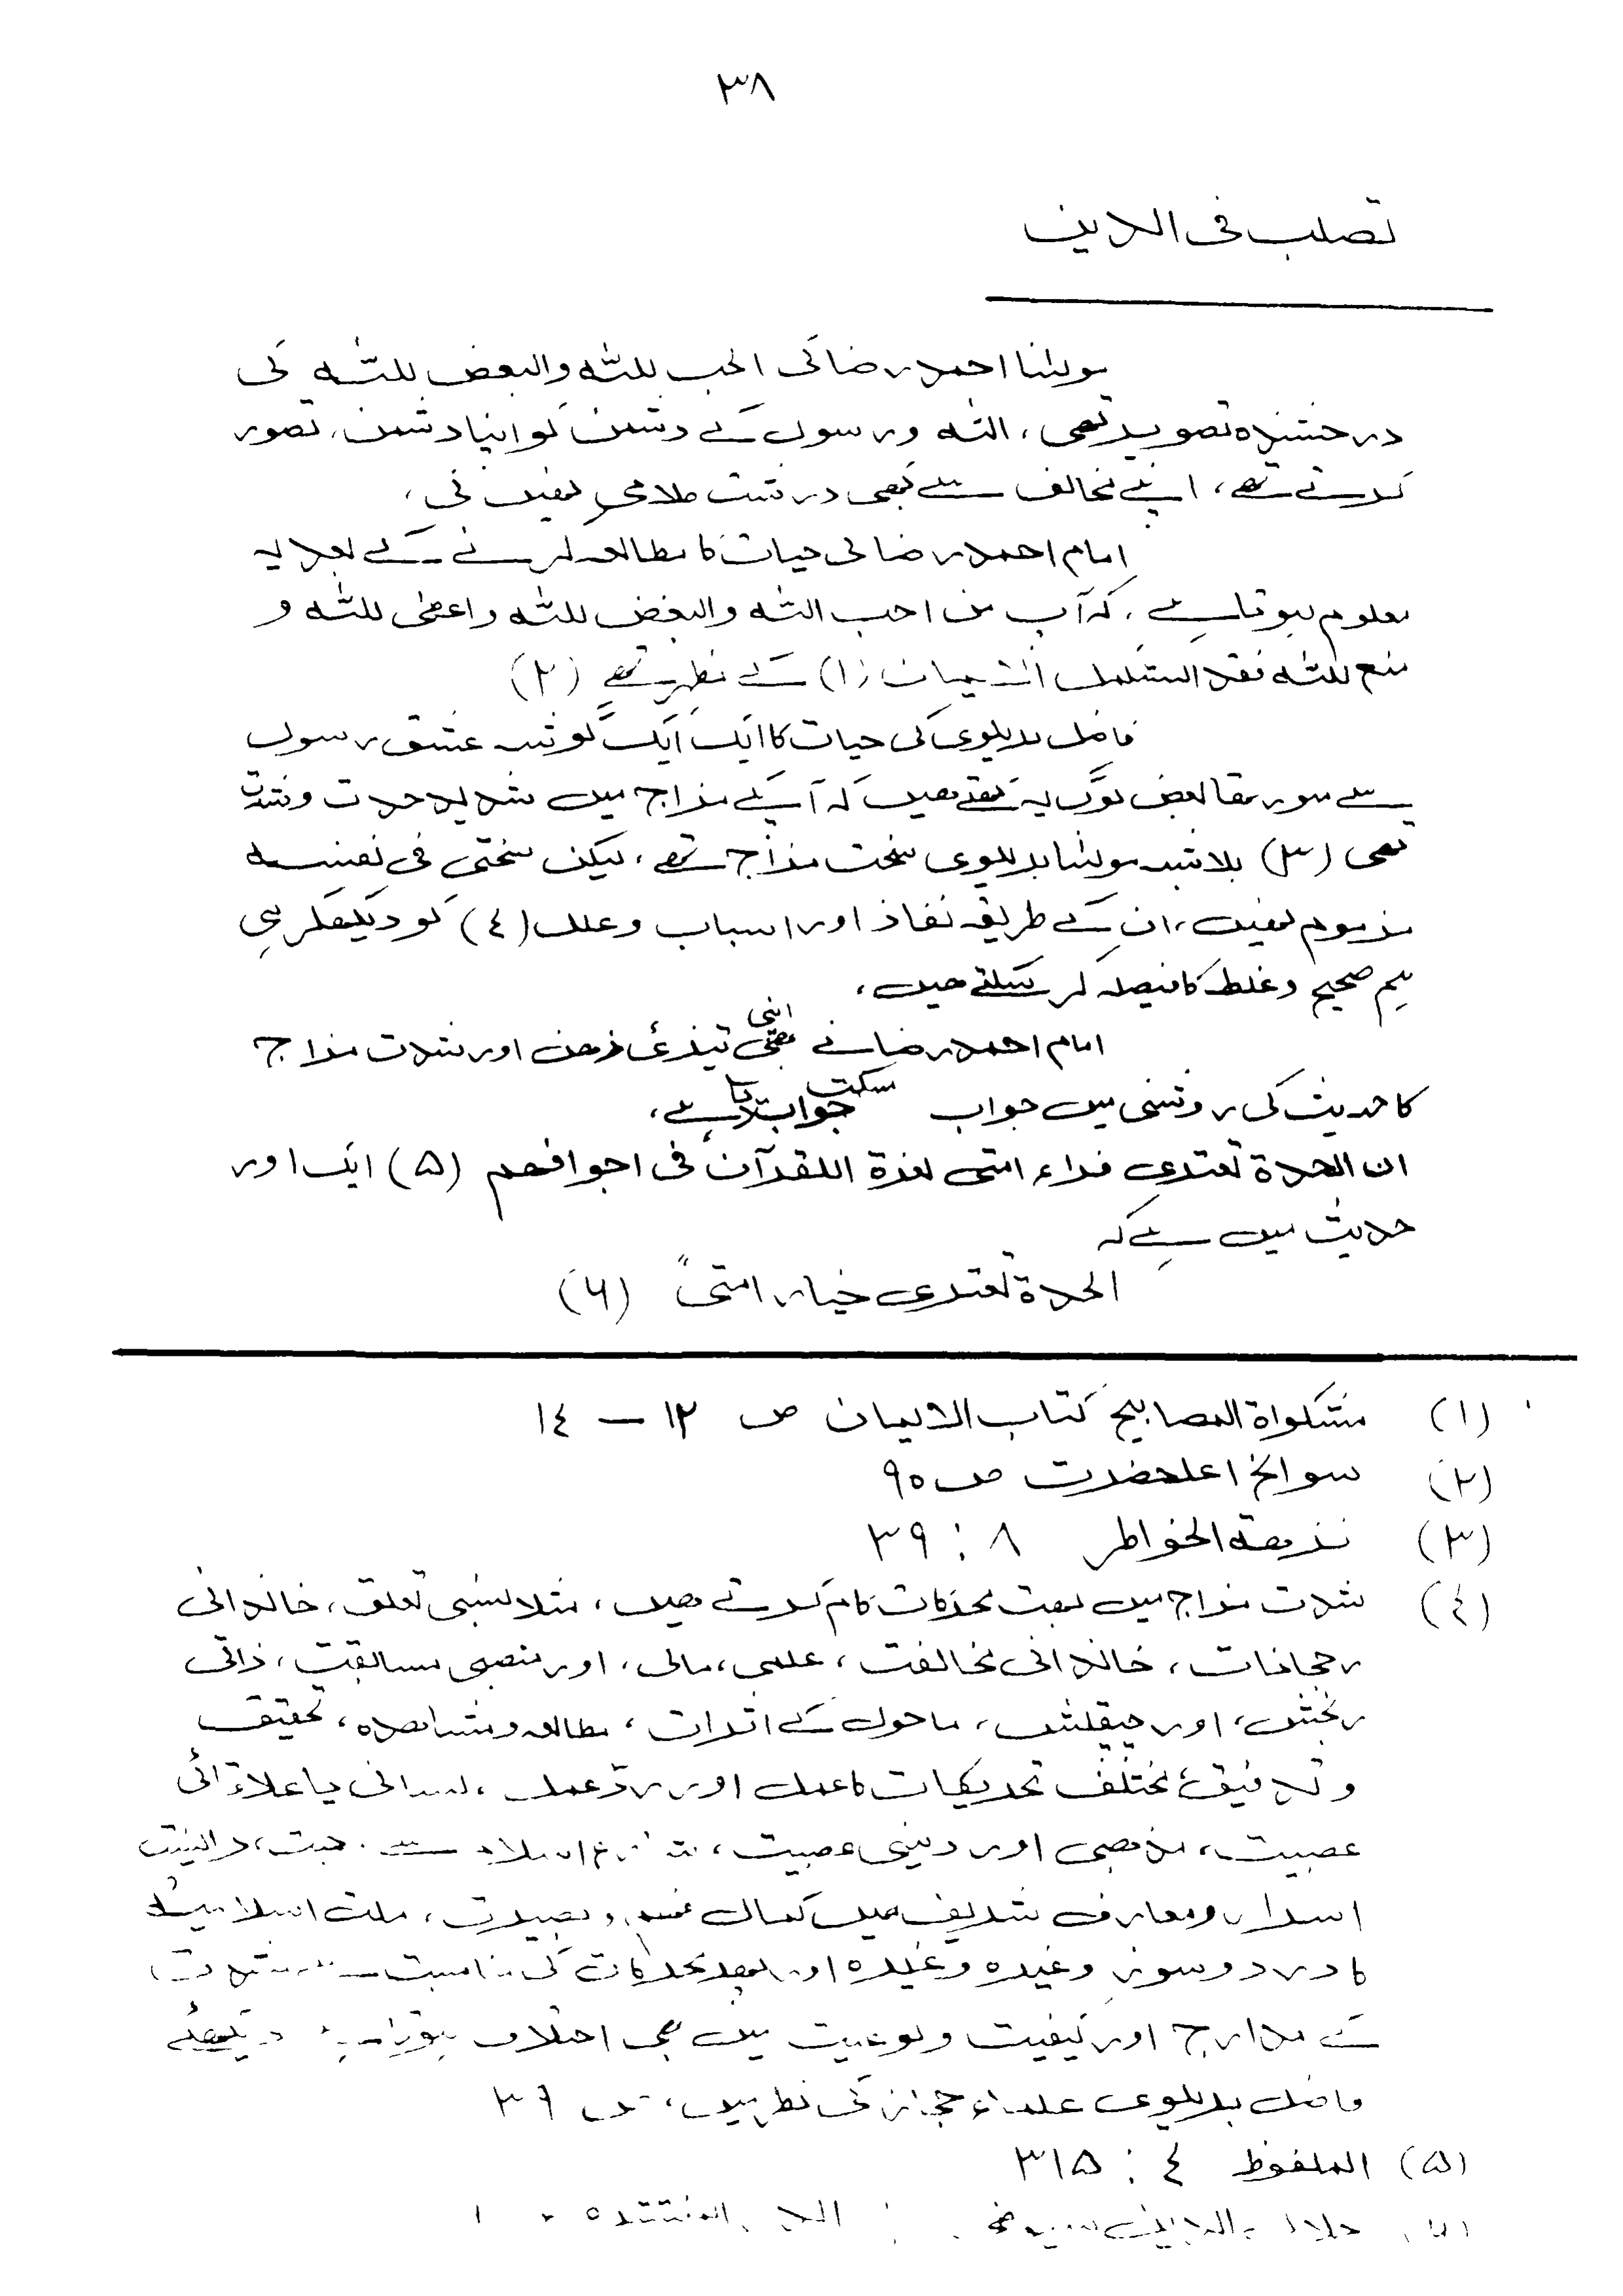 ٣٨
تصلب فی الدین
مولٰنا احمد رضا کی الحب للّٰه والبغض للّٰه کی
درخشندہ تصویر تھی، اللّٰه و رسول کے دشمن کو اپنا دشمن تصور
کرتے تھے، اپنے مخالف سے کبھی درشت کلامی نہیں کی،
امام احمد رضا کی حیات کا مطالعہ کرنے کے بعد یہ
معلوم ہوتا ہے، کہ آپ من احب اللّٰه والبغض للّٰه واعطٰی للّٰه و
منع للّٰه فقد استکمل الایمان (١) کے مظہر تھے (٢)
فاضل بریلوی کی حیات کا ایک ایک گوشہ عشق رسول
سے معمور تھا بعض لوگ یہ کہتے ہیں کہ آپ کے مزاج میں شدید حدت و شدت
تھی (٣) بلا شبہ مولٰنا بریلوی سخت مزاج تھے، لیکن سختی فی نفسہ
مذموم نہیں، ان کے طریقہ نفاذ اور اسباب و علل (٤) کو دیکھکر ہی
ہم صحیح و غلط کا فیصلہ کر سکتے ہیں،
امام احمد رضا نے بھی اپنی تیزئ ذہن اور شدت مزاج
کا حدیث کی روشنی میں جواب مسکت جواب دیا ہے،
ان الحدة تعتری قراء امتی لعزة القرآن فی اجوافهم (۵) ایک اور
حدیث میں ہے کہ
الحدة تعتری خیار امتی" (٦)
(١) مشکواة المصابیح کتاب الایمان ص ١٣ – ١٤
(٢) سوانح اعلحضرت ص ٩٥
(٣) نزھة الخواطر ٨ : ٣٩
(٤) شدت مزاج میں بہت محرکات کام کرتے ہیں، مثلا نسبی تعلق، خاندانی
رجحانات، خاندانی مخالفت، علمی، مالی، اور منصبی مسابقت، ذاتی
رنجش، اور چپقلش، ماحول کے اثرات، مطالعہ و مشاہدہ، تحقیق
و تدقیق، مختلف تحریکات کا عمل اور ردّ عمل، لسانی یا علاقائی
عصبیت، مذہبی اور دینی عصبیت، اسلام سے
اسرار و معارف شریف میں کمال فہم و بصیرت، ملت اسلامیہ
کا درد و سوز وغیرہ وغیرہ اور محرکات کی مناسبت سے شدت
کے مدارج اور کیفیت و نوعیت میں بھی اختلاف ہوتا ہے دیکھئے
فاضل بریلوی علماء حجاز کی نظر میں، ص ٣٦
(۵) الملفوظ ٤ : ٣١۵
(٦) جلال الدین سیوطی : المنتثرہ